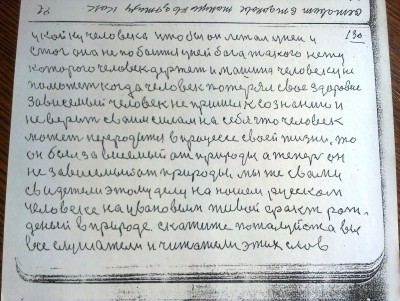 130
у койку человека чтобы он лежал у ней и
она не побоится у ней бога такого нету
которого человек держет и машина человеку не
поможет когда человек потерял свое здоровие
зависемый человек не пришел к сознанию и
не верит сам на себя что человек
может переродится в процесе своей жизни, то
он был зависемый от природы а теперь он
не зависемый от природы, мы же с вами
свидетели этому делу на нашем русском
человеке на ивановым живой факт рож-
деный в природе скажите пожалуйста вы
все слушатели и читатели этих слов